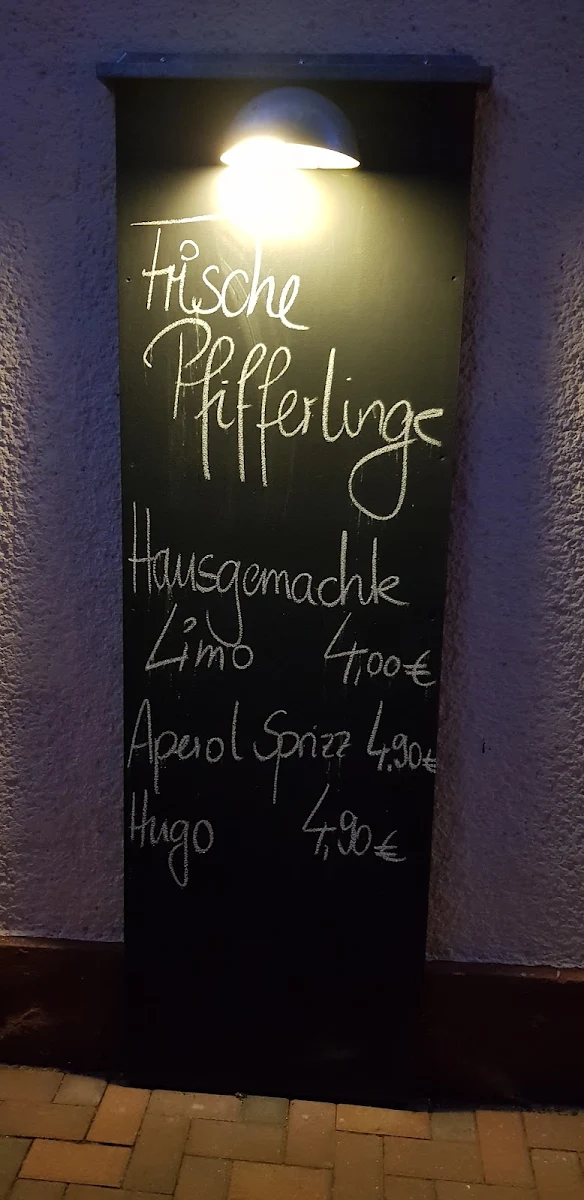 Frische
Pfifferlinge
Hausgemachte
Limo 4,00€
Aperol Sprizz 4,90€
Hugo 4,90€